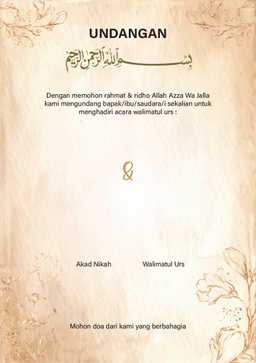 UNDANGAN
بسم الله الرحمن الرحيم
Dengan memohon rahmat & ridho Allah Azza Wa Jalla
kami mengundang bapak/ibu/saudara/i sekalian untuk
menghadiri acara walimatul urs :
&
Akad Nikah Walimatul Urs
Mohon doa dari kami yang berbahagia